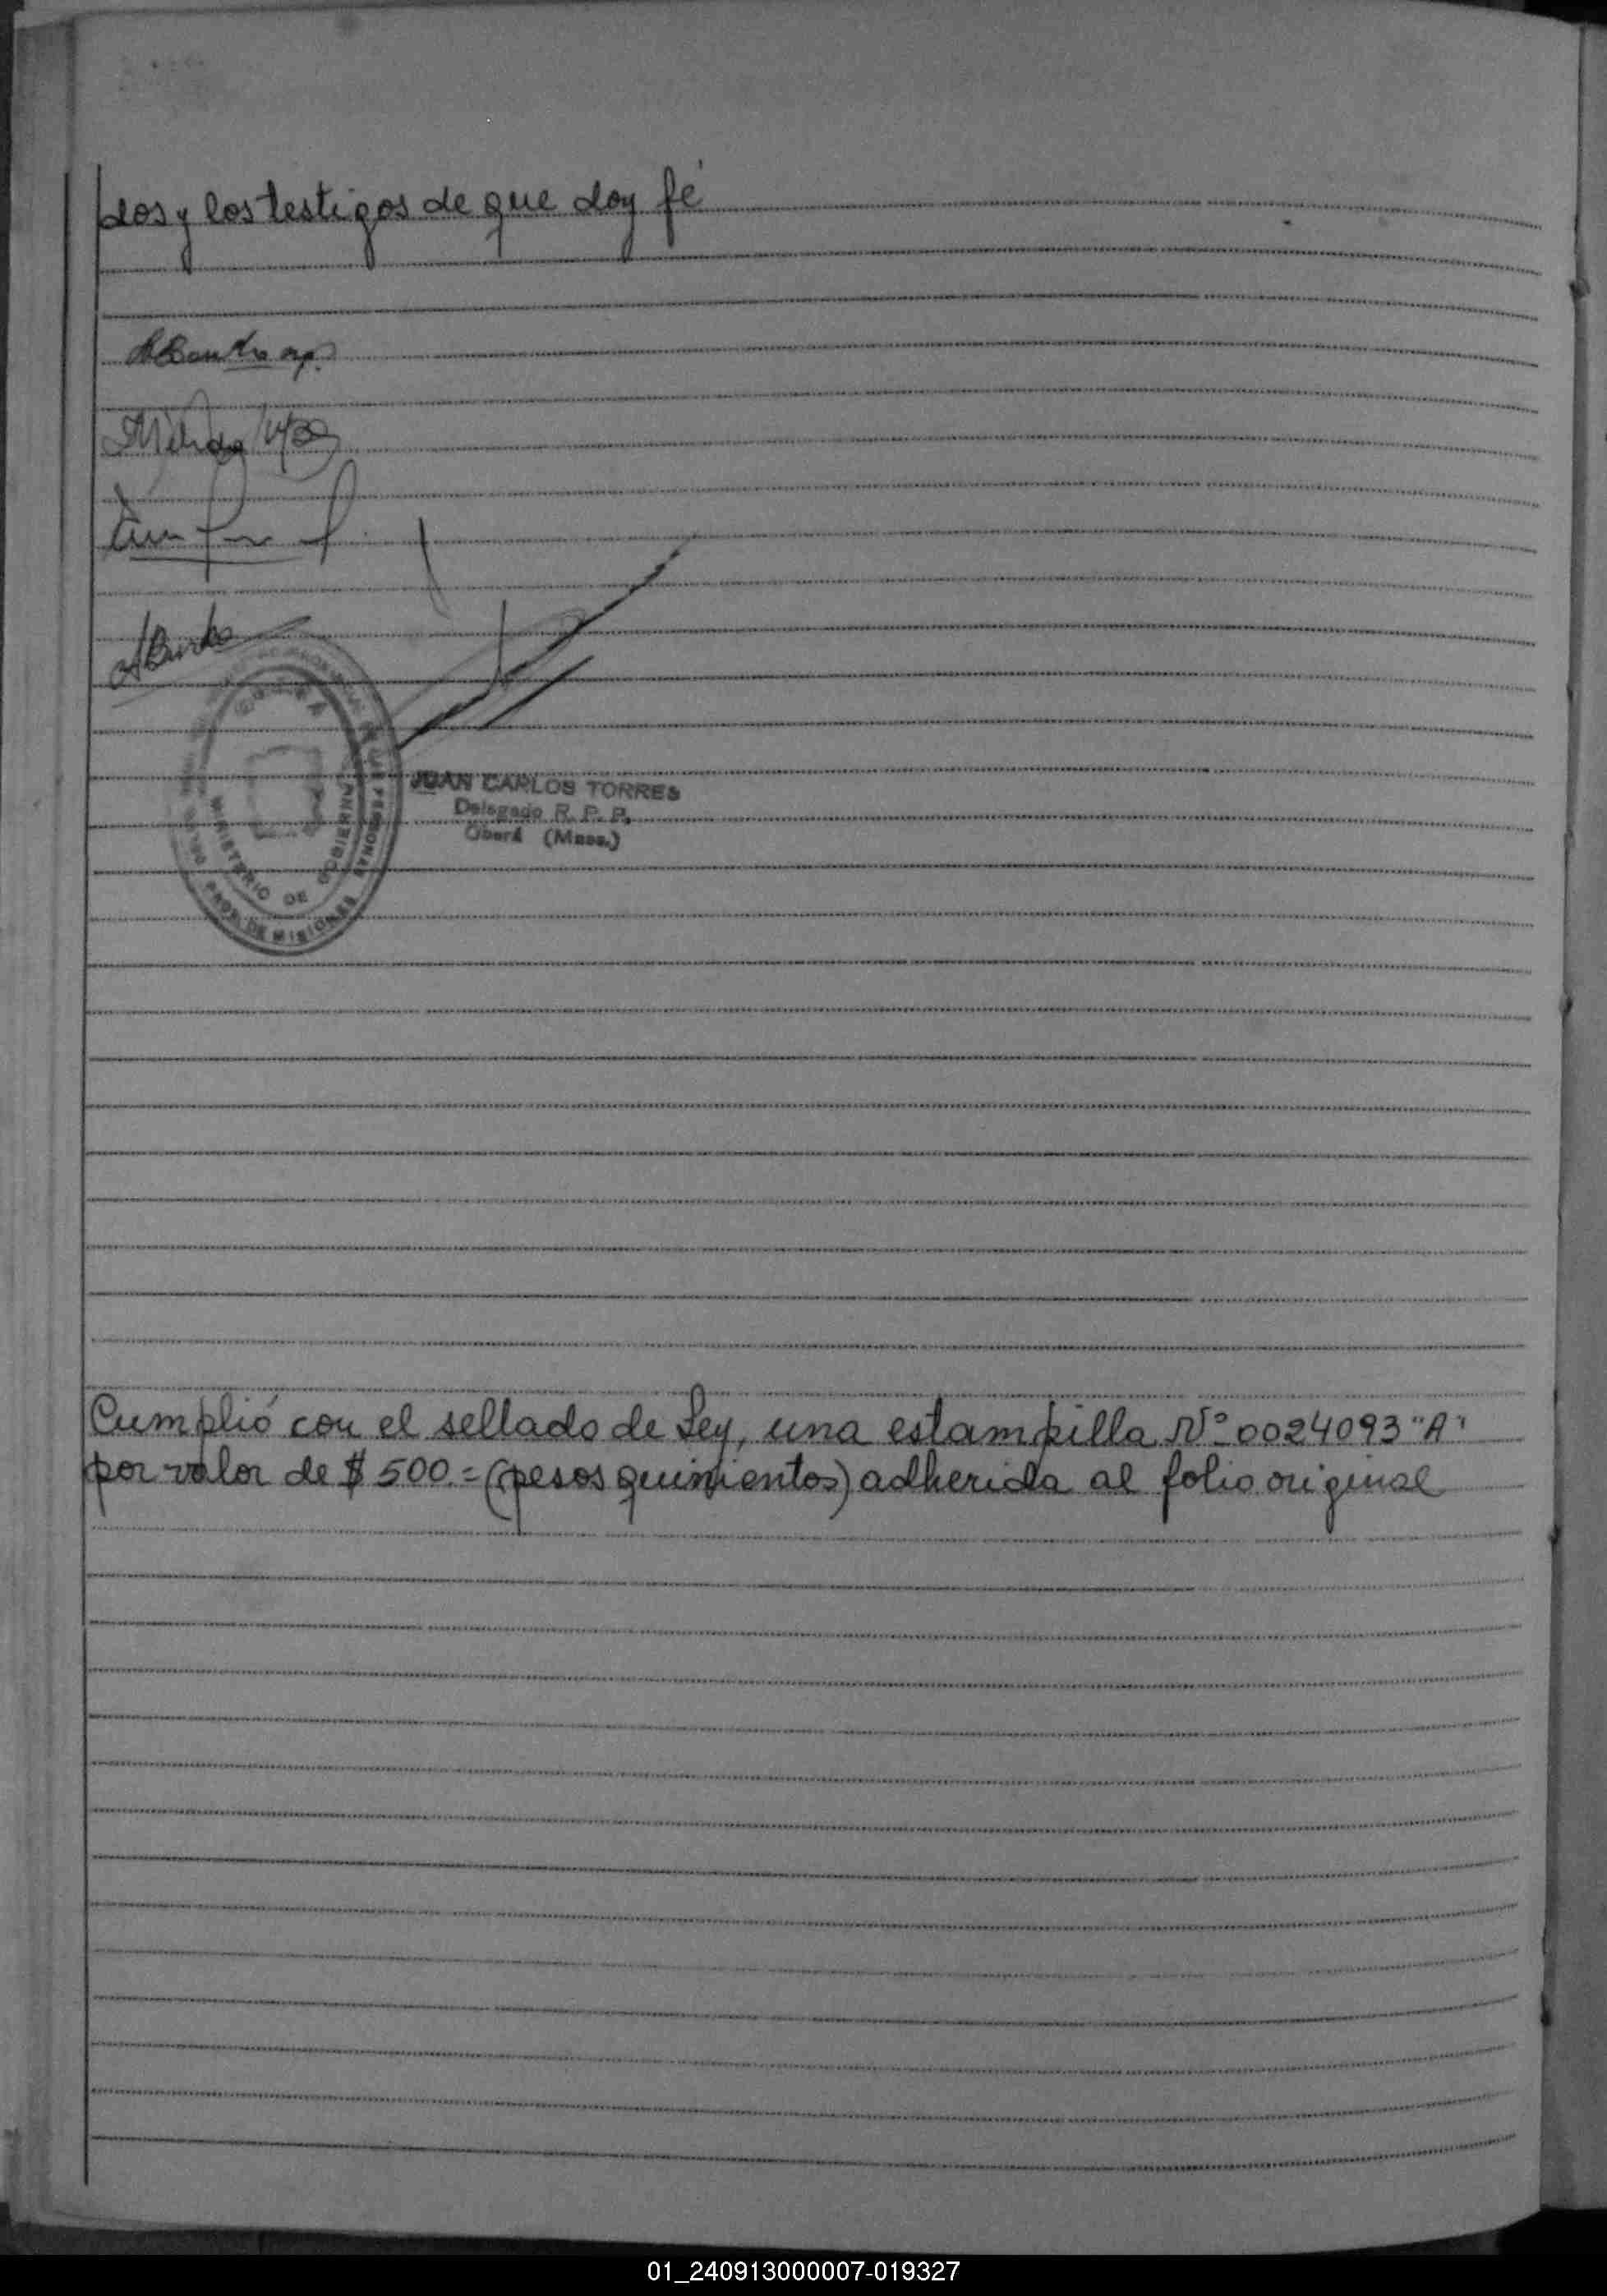 dos y los testigos de que doy fé
JUAN CARLOS TORRES
Delegado R. P. P.
Oberá (Mnes.)
MINISTERIO DE GOBIERNO
PROV. DE MISIONES
Cumplió con el sellado de Ley, una estampilla Nº 0024093 "A"
por valor de $ 500.= (pesos quinientos) adherida al folio original
01_240913000007-019327